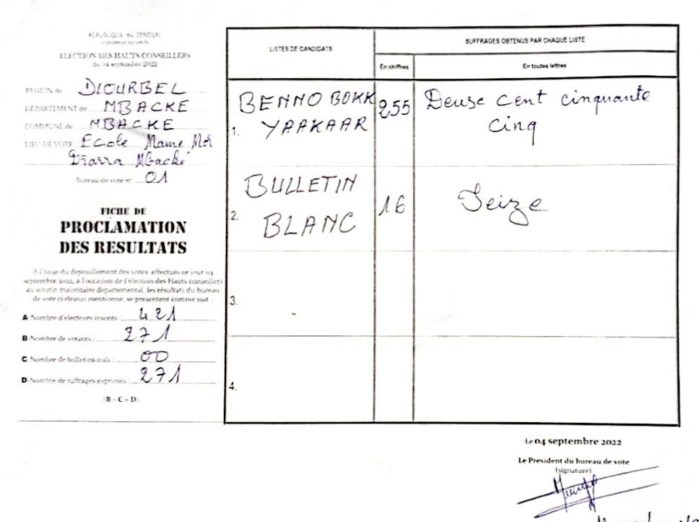 REPUBLIQUE du SENEGAL
ELECTION DES HAUTS CONSEILLERS
du 04 septembre 2022
REGION de DIOURBEL
DÉPARTEMENT de MBACKE
COMMUNE de MBACKE
LIEU DE VOTE Ecole Mame Mor
Diarra Mbacké
Bureau de vote n° 01
FICHE DE
PROCLAMATION
DES RESULTATS
A l'issue du depouillement des votes, effectués ce jour 04
septembre 2022, à l'occasion de l'élection des Hauts conseillers
au scrutin majoritaire départemental, les résultats du bureau
de vote ci-dessus mentionné, se présentent comme suit :
A Nombre d'électeurs inscrits 421
B Nombre de votants 271
C Nombre de bulletins nuls 00
D Nombre de suffrages exprimés 271
(B - C = D)
LISTES DE CANDIDATS
SUFFRAGES OBTENUS PAR CHAQUE LISTE
En chiffres
En toutes lettres
1. BENNO BOKK
YAAKAAR
255
Deuse cent cinquante
cinq
2. BULLETIN
BLANC
16
Seize
3.
4.
Le 04 septembre 2022
Le Président du bureau de vote
(signature)